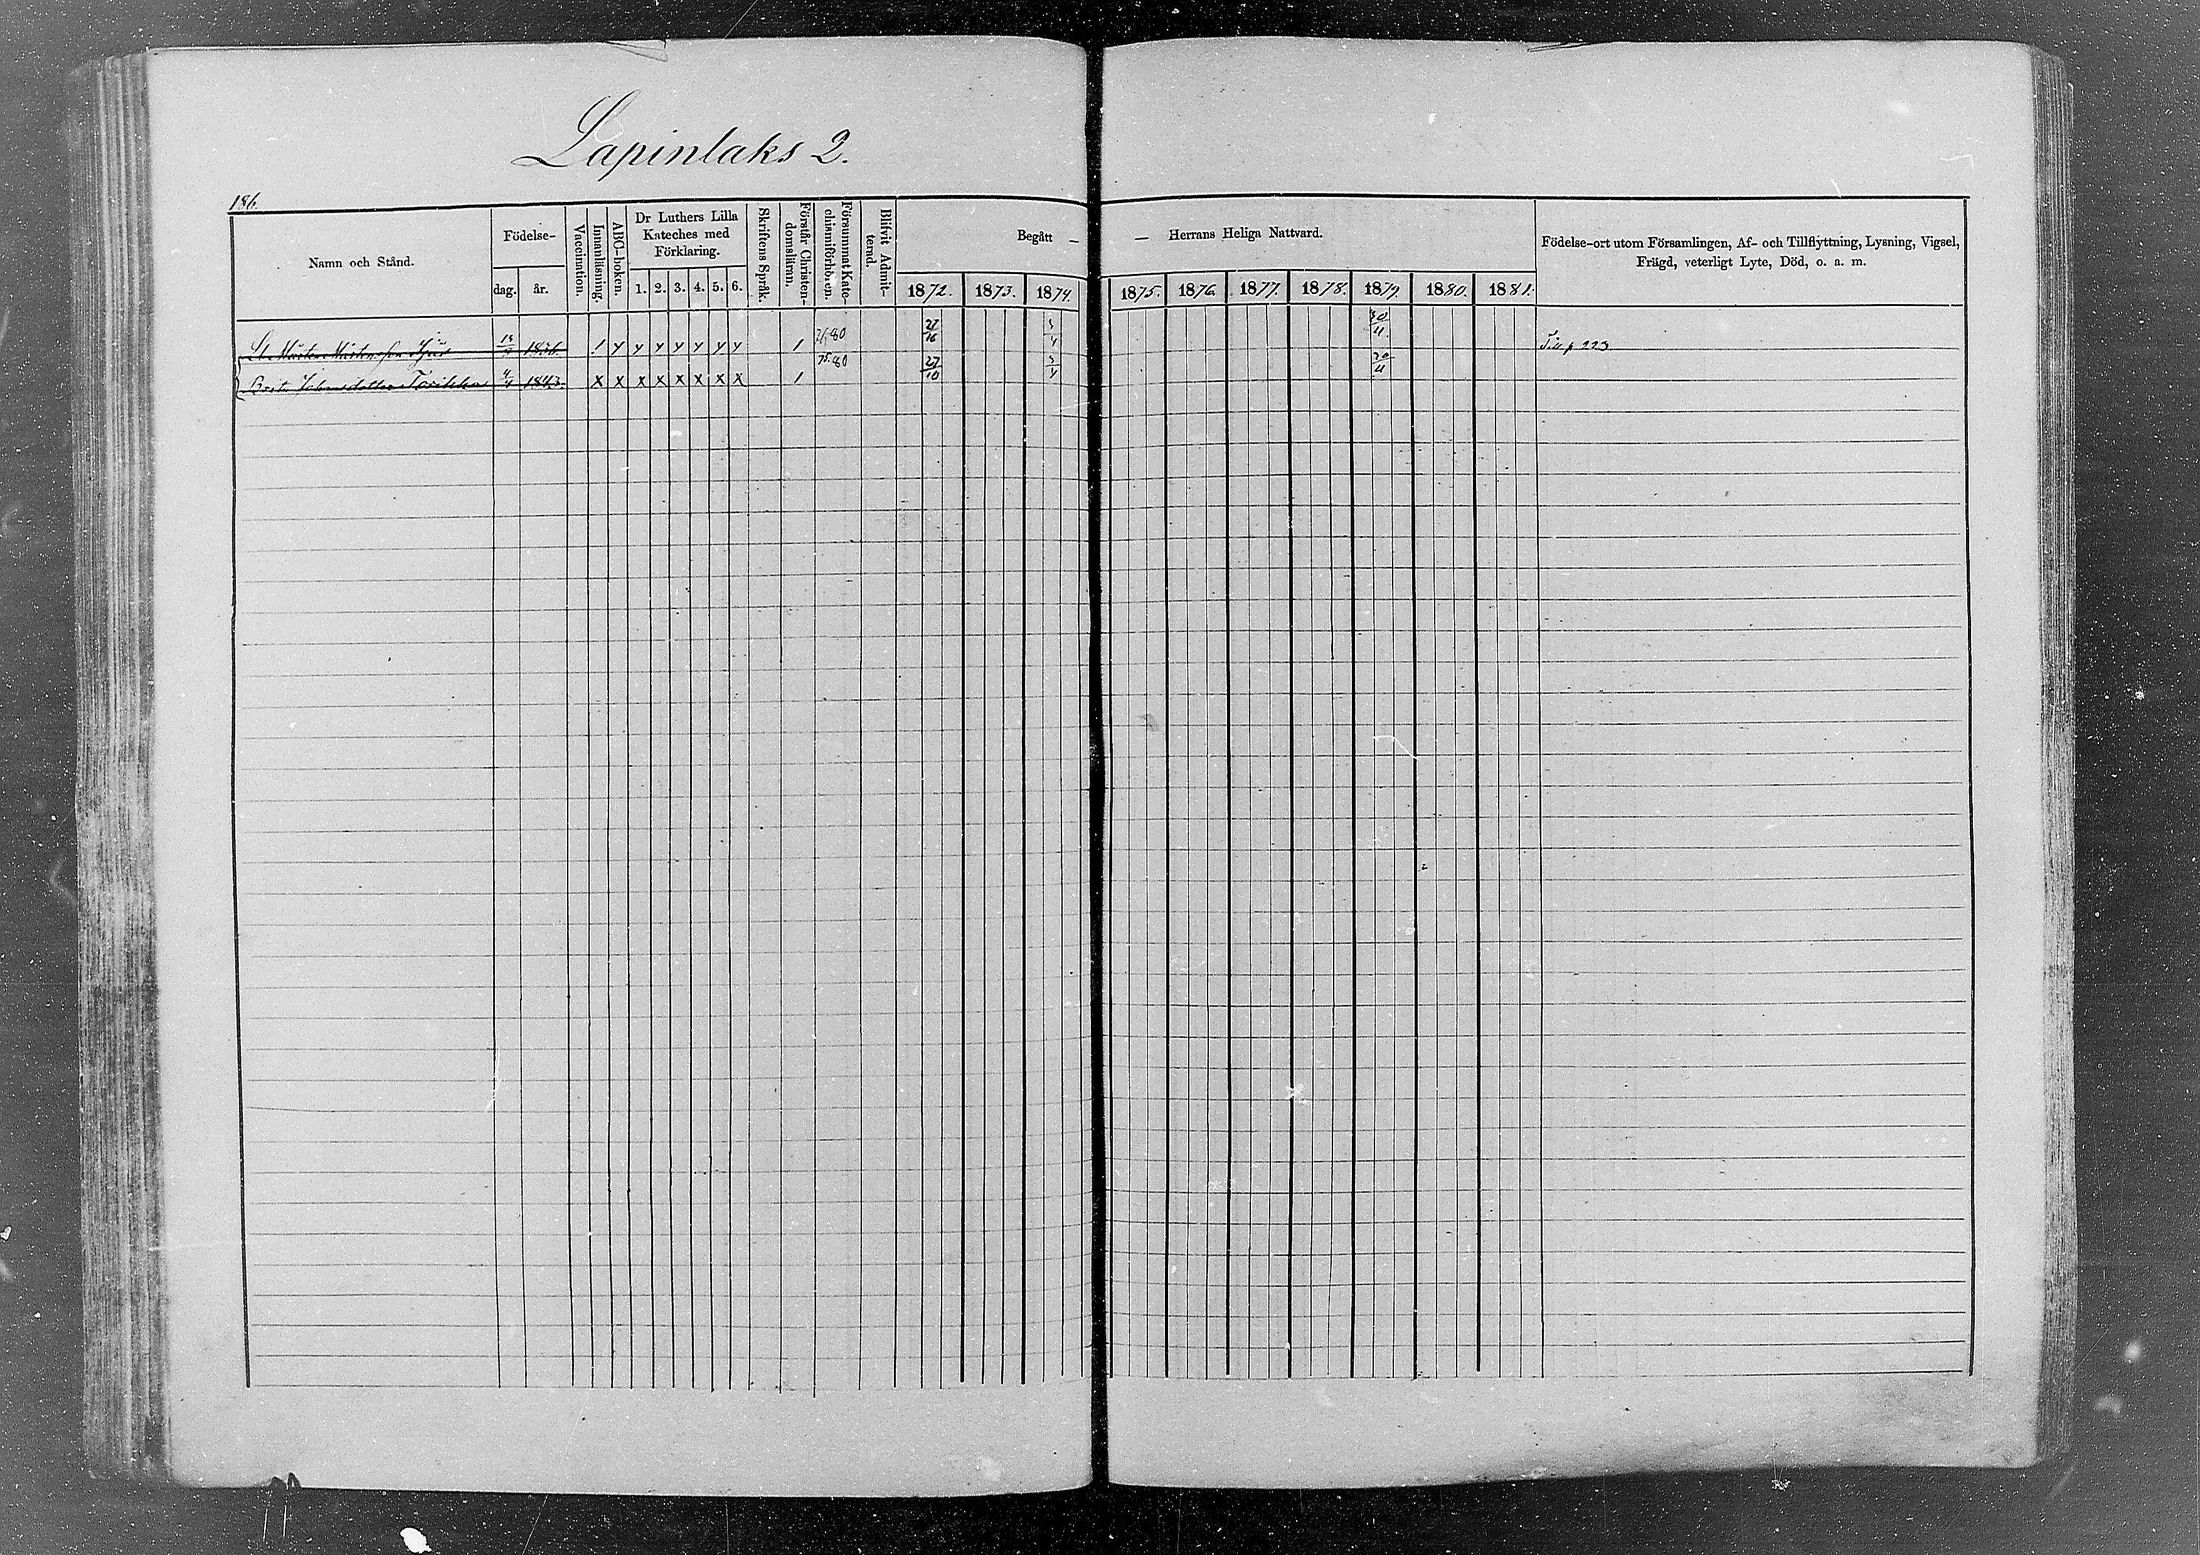 Lapinlaks 2.
186.
Namn och Stånd.
Födelse-
dag.
år.
Vaccination.
Innanläsning.
ABC-boken.
Dr Luthers Lilla
Kateches med
Förklaring.
1. 2. 3. 4. 5. 6.
Skriftens Språk.
Förstår Christen-
domsläran.
Försummat Kate-
chismiförhören.
Blifvit Admit-
terad.
Begått —
— Herrans Heliga Nattvard.
1872. 1873. 1874. 1875. 1876. 1877. 1878. 1879. 1880. 1881.
Födelse-ort utom Församlingen, Af- och Tillflyttning, Lysning, Vigsel,
Frägd, veterligt Lyte, Död, o. a. m.
Mårten Mårtensson 1 y y y y y y y 1 76.80 Till p 223
Brita Johansdotter 4/4 1843 x x x x x x x x 1 75.80 27/10